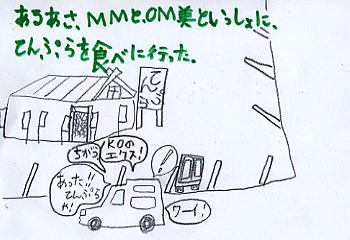 あるあさ、MMと、OM美といっしょに、
てんぷらを食べに行った。
てんぷら
KOの
エクス!
ちがう
!
あった!!
てんぷら
や!
ワーイ!